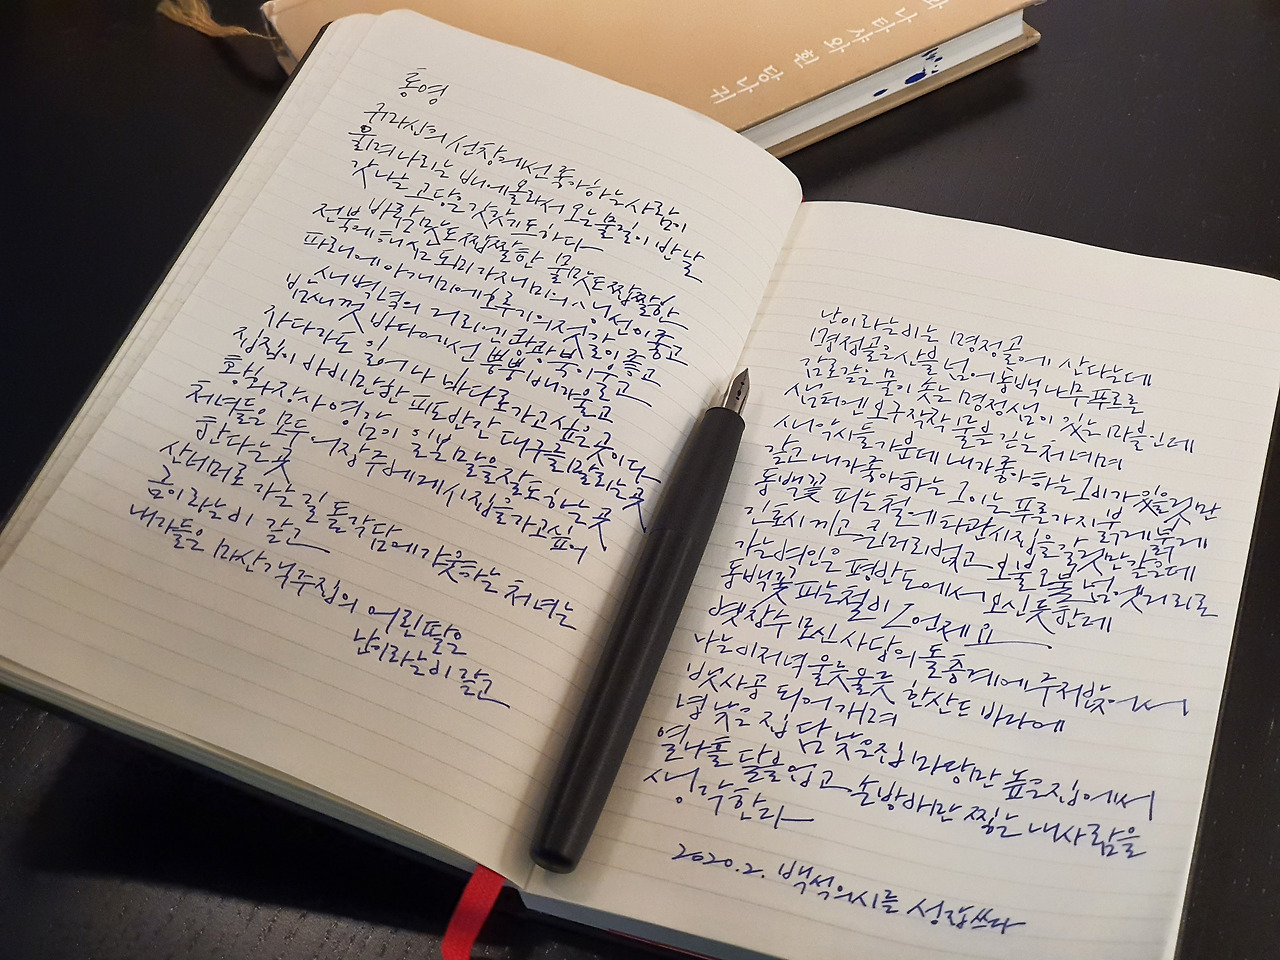 와 나타샤와 흰 당나귀
통영
구마산의 선창에선 좋아하는 사람이
울며 나리는 배에 올라서 오는 물길이 반날
갓 나는 고당은 갓갓기도 하다
바람맛도 짭짤한 물맛도 짭짤한
전북에 해삼 도미 가재미의 생선이 좋고
파래에 아개미에 호루기의 젓갈이 좋고
새벽녘의 거리엔 쾅쾅 북이 울고
밤새껏 바다에선 뿡뿡 배가 울고
자다가도 일어나 바다로 가고 싶은 곳이다
집집이 아이만한 피도 안간 대구를 말리는 곳
황화장사 영감이 일본말을 잘도 하는 곳
처녀들은 모두 어장주에게 시집을 가고 싶어
한다는 곳
산 너머로 가는 길 돌각담에 갸웃하는 처녀는
금이라는 이 같고
내가 들은 마산 객주집의 어린 딸은
난이라는 이 같고
난이라는 이는 명정골에 산다는데
명정골은 산을 넘어 동백나무 푸르른
감로 같은 물이 솟는 명정샘이 있는 마을인데
샘터엔 오구작작 물을 긷는 처녀며
새악시들 가운데 내가 좋아하는 그이가 있을 것만
같고 내가 좋아하는 그이는 푸른 가지 붉게 붉게
동백꽃 피는 철에 타관 시집을 갈 것만 같은데
긴 토시 끼고 큰머리 얹고 오불고불 넘엣거리로
가는 여인은 평안도에서 오신 듯한데
동백꽃 피는 철이 그 언제요
옛 장수 모신 사당의 돌층계에 주저앉어서
나는 이 저녁 울듯 울듯 한산도 바다에
뱃사공 되어가며
녕 낮은 집 담 낮은 집 마당만 높은 집에서
열나흘 달을 업고 손방아만 찧는 내 사람을
생각한다
2020.2. 백석의 시를 쓰다